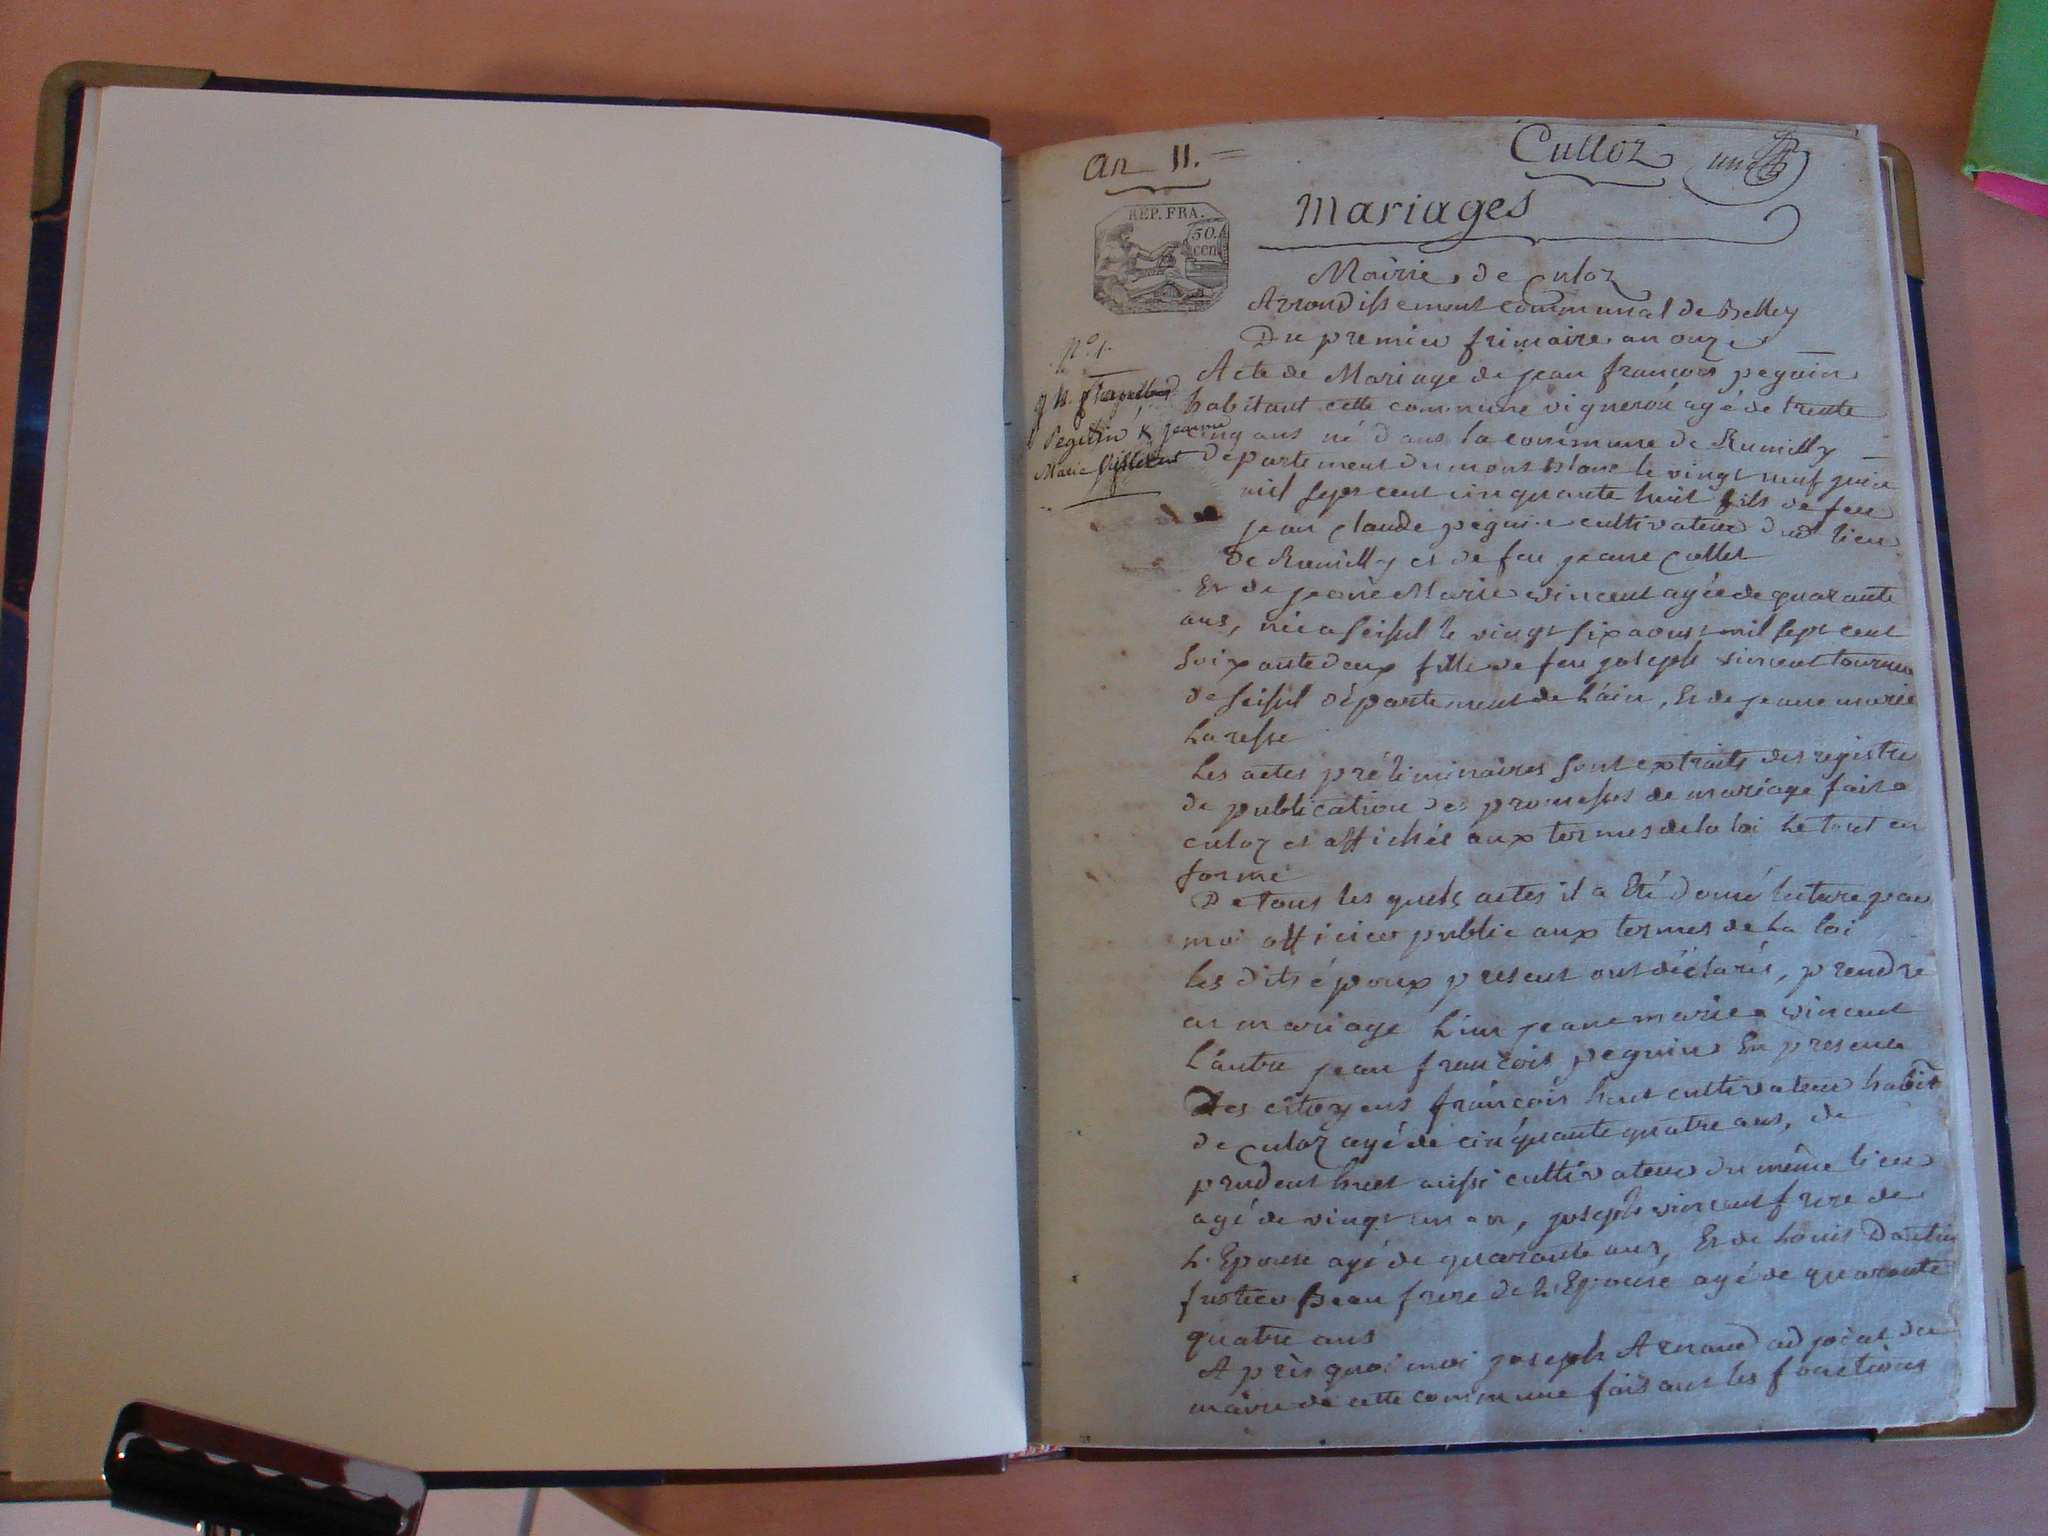 An 11.
Culloz
Mariages
REP. FRA.
50.
cen
Mairie de Culoz
Arrondissement communal de Belley
Du premier frimaire an onze
N.° 1.
Acte de Mariage de jean francois peguin
habitant cette commune vigneron agé de trente
Peguin & Jeanne
Marie
cinq ans né dans la commune de Rumilly
département du mont blanc le vingt neuf juin
mil sept cent cinquante huit fils de feu
jean claude peguin cultivateur dud lieu
de Rumilly et de feu jeane Collet
Et de jeane Marie vincent agée de quarante
ans, née a seissel le vingt six aoust mil sept cent
soixante deux fille de feu joseph vincent
de seissel département de L'ain, Et de jeane marie
Laresse
Les actes préliminaires sont extraits des registre
de publication des promesses de mariage fait a
culoz et affichés aux termes de la loi Le tout en
forme
De tous les quels actes il a Eté doné lecture par
moi officier public aux termes de La loi
les dits époux present ont déclarés, prendre
en mariage L'un jeane marie vincent
L'autre jean francois peguin En presence
Des citoyens francois huet cultivateur habit
de Culoz agé de cinquante quatre ans, de
prudent huet aussi cultivateur du même lieu
agé de vingt un an, joseph vincent frere de
L'Epouse agé de quarante ans, Et de Louis
Beau frere de L'Epouse agé de quarante
quatre ans
Après quoi moi joseph Arnaud adjoint du
maire de cette commune faisant les fonctions